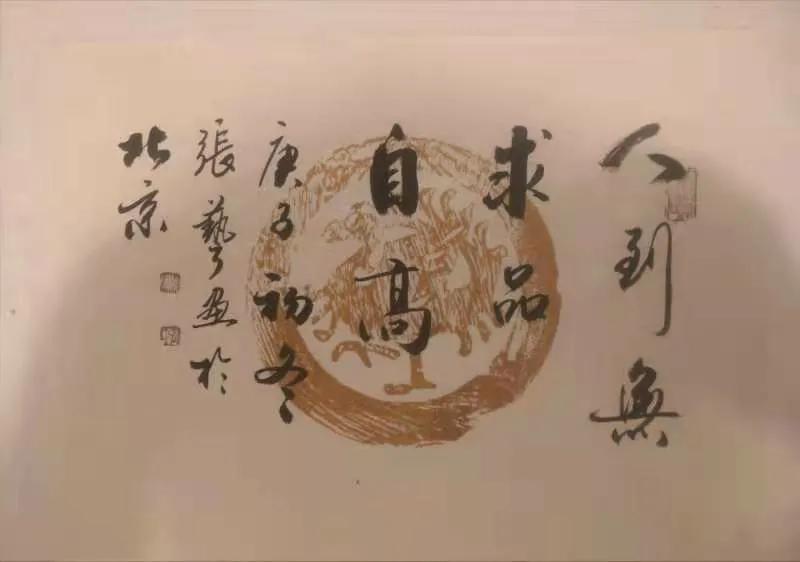 人到無
求品
自高
庚子初冬
張藝书於
北京